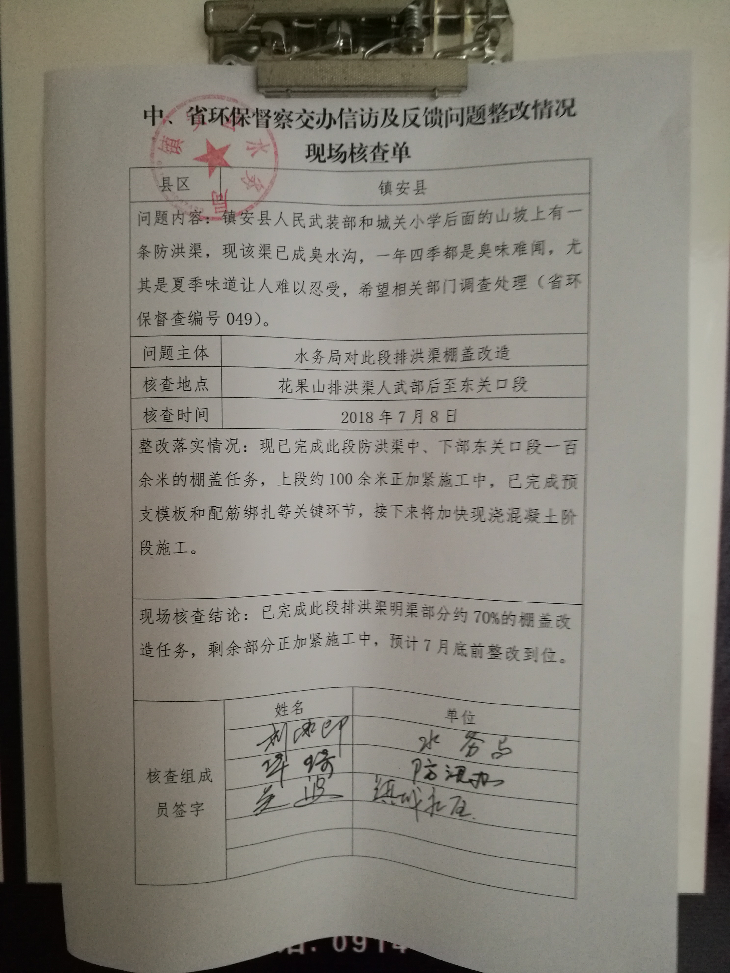 中、省环保督察交办信访及反馈问题整改情况
现场核查单
县区 镇安县
问题内容：镇安县人民武装部和城关小学后面的山坡上有一
条防洪渠，现该渠已成臭水沟，一年四季都是臭味难闻，尤
其是夏季味道让人难以忍受，希望相关部门调查处理（省环
保督查编号 049）。
问题主体 水务局对此段排洪渠棚盖改造
核查地点 花果山排洪渠人武部后至东关口段
核查时间 2018 年 7 月 8 日
整改落实情况：现已完成此段防洪渠中、下部东关口段一百
余米的棚盖任务，上段约 100 余米正加紧施工中，已完成预
支模板和配筋绑扎等关键环节，接下来将加快现浇混凝土阶
段施工。
现场核查结论：已完成此段排洪渠明渠部分约 70%的棚盖改
造任务，剩余部分正加紧施工中，预计 7 月底前整改到位。
姓名 单位
水务局
防汛办
核查组成
员签字
0914